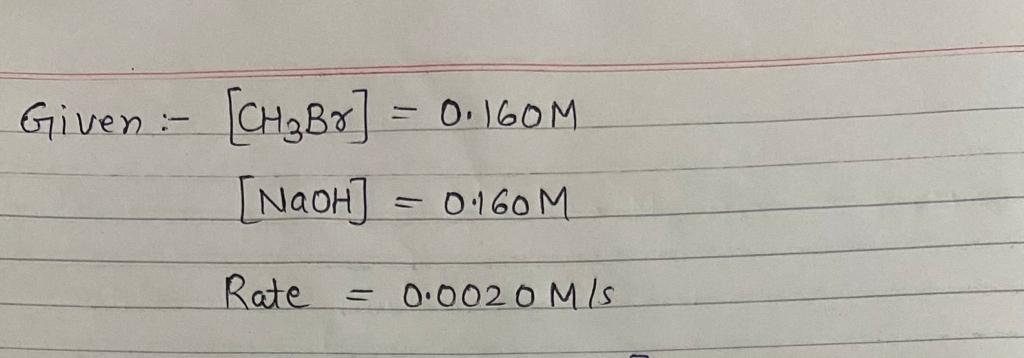 Given :- [CH₃Br] = 0.160M
[NaOH] = 0.160M
Rate = 0.0020 M/s